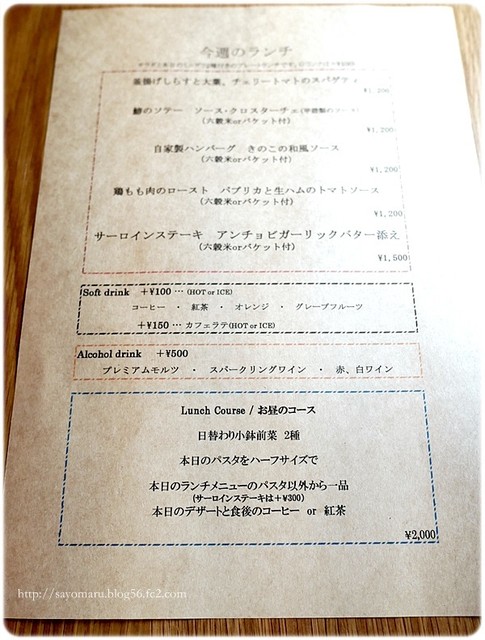 今週のランチ
釜揚げしらすと大葉、チェリートマトのスパゲティ
¥1,200
鯵のソテー ソース・クロスターチェ(甲殻類のソース)
(六穀米orバケット付)
¥1,200
自家製ハンバーグ きのこの和風ソース
(六穀米orバケット付)
¥1,200
鶏もも肉のロースト パプリカと生ハムのトマトソース
(六穀米orバケット付)
¥1,200
サーロインステーキ アンチョビガーリックバター添え
(六穀米orバケット付)
¥1,500
Soft drink +¥100 … (HOT or ICE)
コーヒー ・ 紅茶 ・ オレンジ ・ グレープフルーツ
+¥150 … カフェラテ(HOT or ICE)
Alcohol drink +¥500
プレミアムモルツ ・ スパークリングワイン ・ 赤、白ワイン
Lunch Course / お昼のコース
日替わり小鉢前菜 2種
本日のパスタをハーフサイズで
本日のランチメニューのパスタ以外から一品
(サーロインステーキは+¥300)
本日のデザートと食後のコーヒー or 紅茶
¥2,000
http://sayomaru.blog56.fc2.com